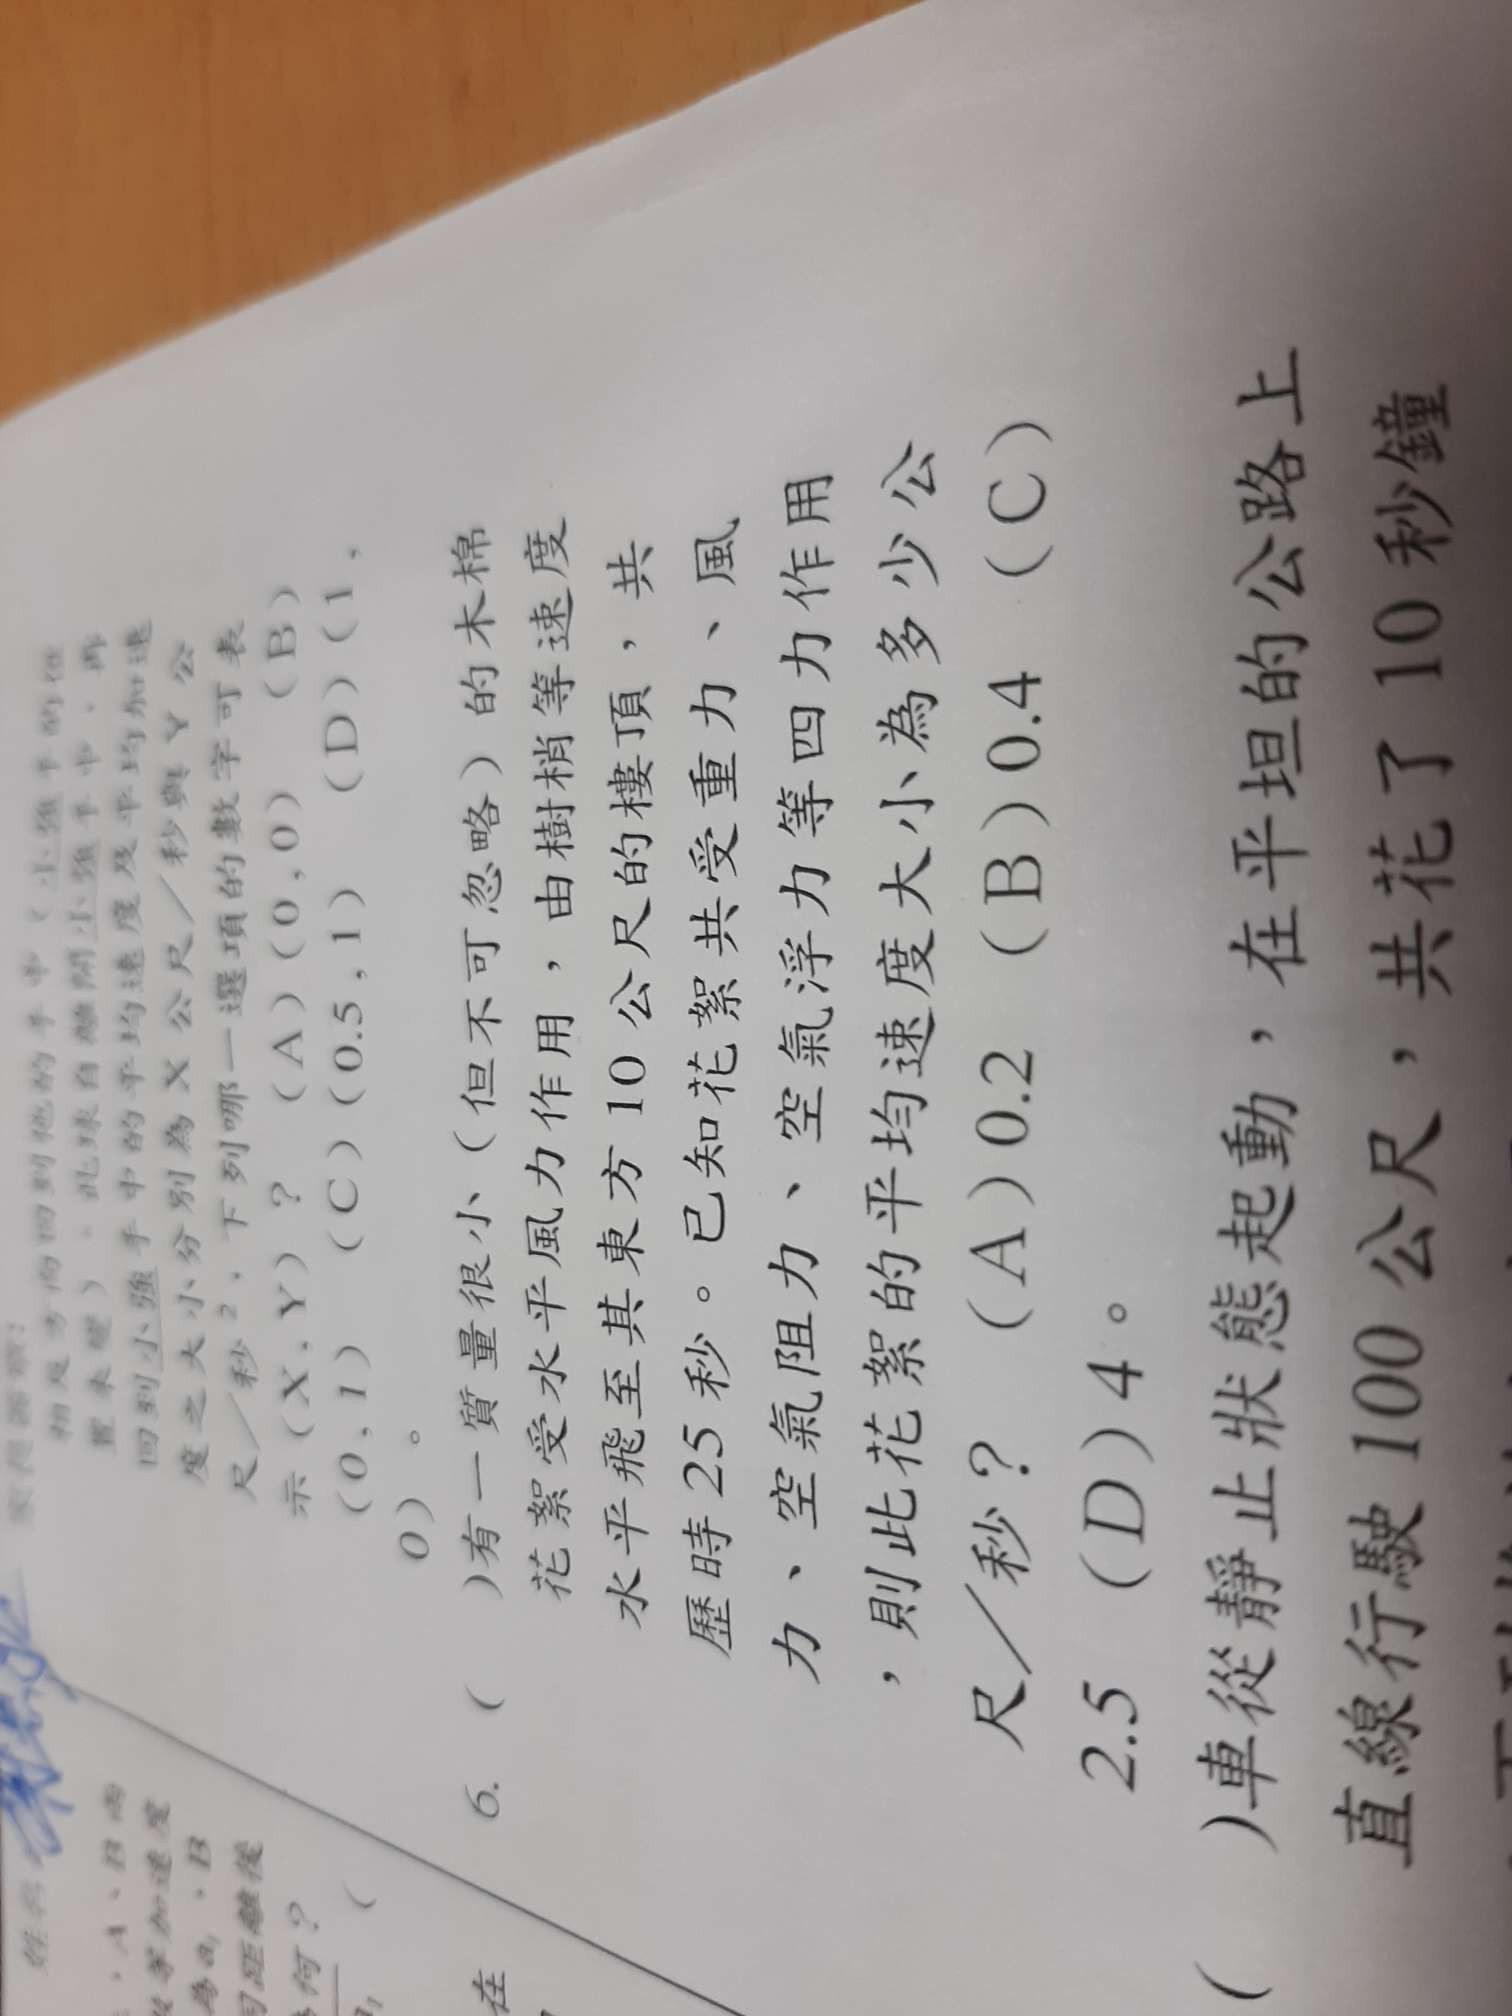 相反方向回到他的手中（小強手的位
置未變）。此球自離開小強手中，再
回到小強手中的平均速度及平均加速
度之大小分別為X公尺／秒與Y公
尺／秒2，下列哪一選項的數字可表
示（X,Y）？ （A）（0,0） （B）
（0,1） （C）（0.5,1） （D）（1,
0）。
6.（ ）有一質量很小（但不可忽略）的木棉
花絮受水平風力作用，由樹梢等速度
水平飛至其東方10公尺的樓頂，共
歷時25秒。已知花絮共受重力、風
力、空氣阻力、空氣浮力等四力作用
，則此花絮的平均速度大小為多少公
尺／秒？ （A）0.2 （B）0.4 （C）
2.5 （D）4。
（ ）車從靜止狀態起動，在平坦的公路上
直線行駛100公尺，共花了10秒鐘
姓名
，A、B兩
等加速度
，B
距離後
何？
（
在